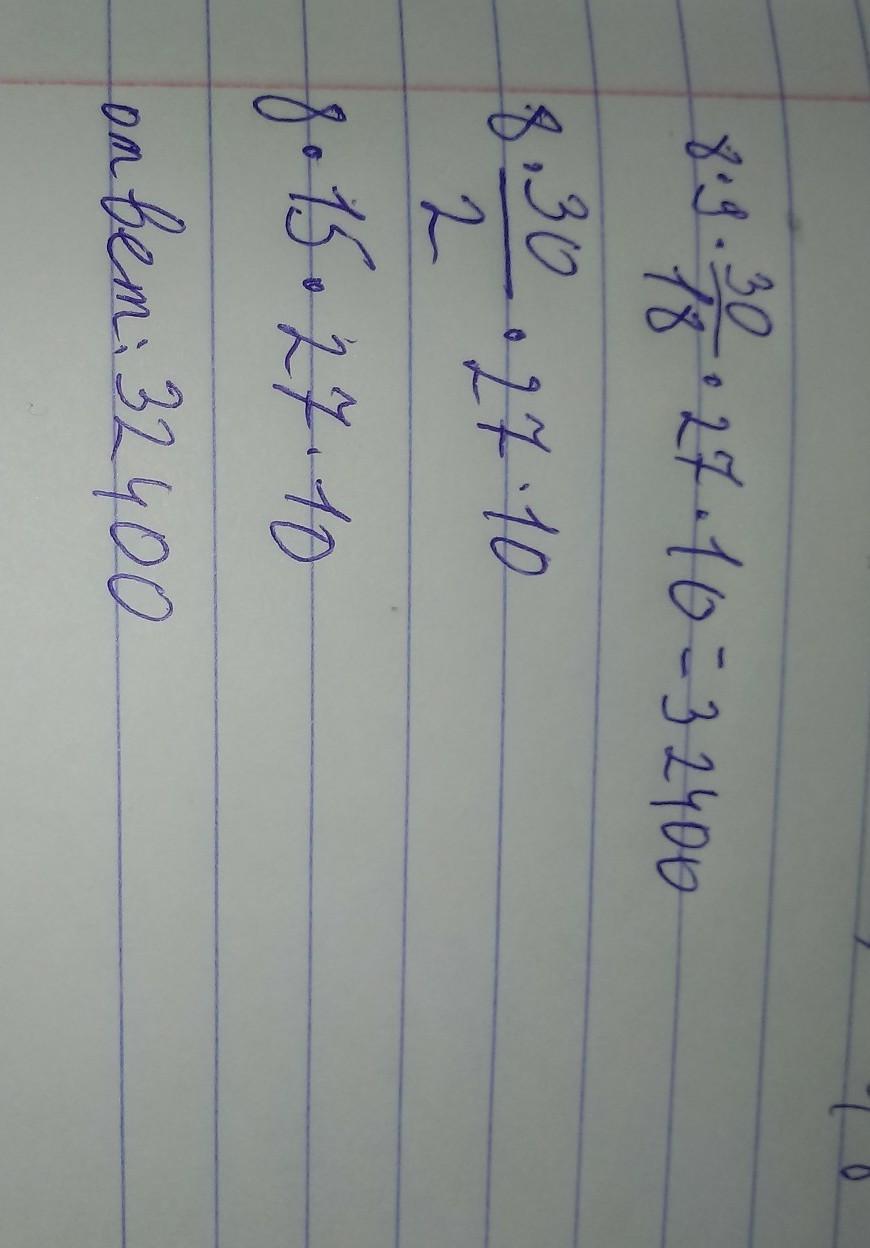 8·9·30/18·27·10=32400
8·30/2·27·10
8·15·27·10
ответ:32400